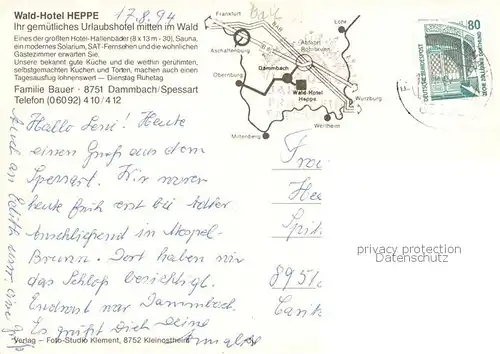 Wald-Hotel HEPPE
17.8.94
Ihr gemütliches Urlaubshotel mitten im Wald
Eines der größten Hotel-Hallenbäder (8 x 13 m - 30), Sauna,
ein modernes Solarium, SAT-Fernsehen und die wohnlichen
Gästezimmer erwarten Sie.
Unsere bekannt gute Küche und die weithin gerühmten,
selbstgemachten Kuchen und Torten, machen auch einen
Tagesausflug lohnenswert — Dienstag Ruhetag.
Familie Bauer · 8751 Dammbach/Spessart
Telefon (06092) 410/412
Frankfurt
Aschaffenburg
Lohr
Abfahrt
Rohrbrunn
Obernburg
Dammbach
Wald-Hotel
Heppe
Würzburg
Wertheim
Miltenberg
80
DEUTSCHE BUNDESPOST
Hallo Leni! Heute
einen Gruß aus dem
Spessart. Wir waren
heute früh erst bei
anschließend in Mespel-
Brunn. Dort haben wir
das Schloß besichtigt.
Endrast war Dammbach.
Es grüßt Dich Deine
Auch an Edith
8951
privacy protection
DARMstadtWeb.de
Verlag — Foto-Studio Klement, 8752 Kleinostheim